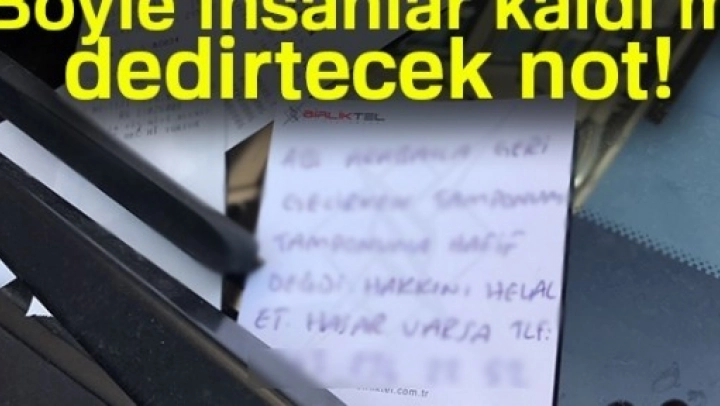 Böyle insanlar kaldı m
dedirtecek not!
BİRLİKTEL
ABİ ARABANLA GERİ
GELİRKEN TAMPONUM
TAMPONUNA HAFİF
DEĞDİ. HAKKINI HELAL
ET. HASAR VARSA TLF:
liktel.com.tr